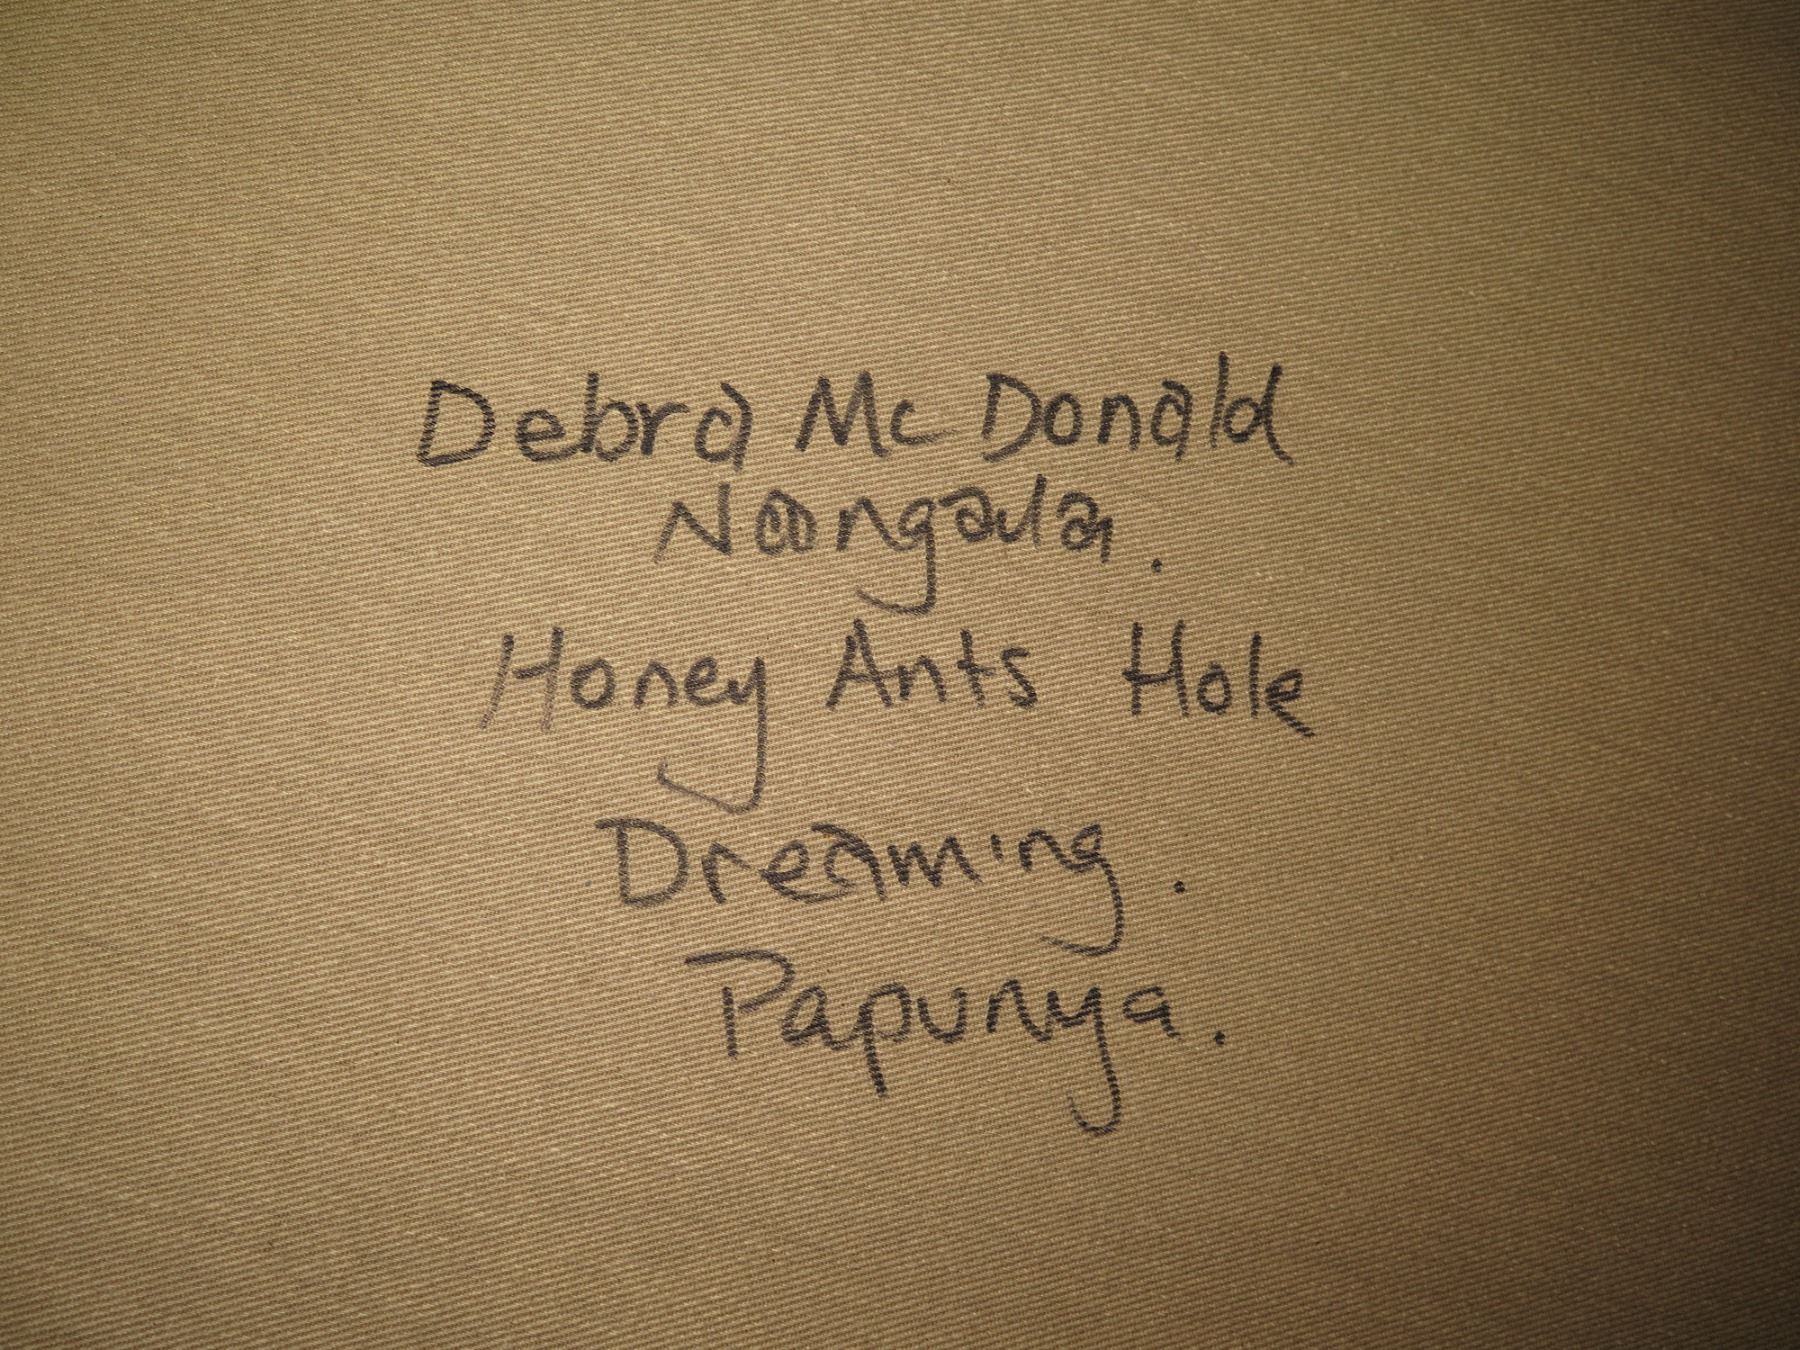 Debra McDonald
Noongala.
Honey Ants Hole
Dreaming.
Papunya.